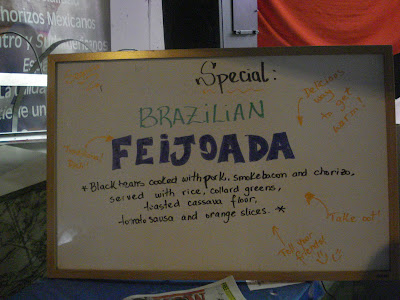 Chorizos Mexicanos
Special:
BRAZILIAN
FEIJOADA
* Black beans cooked with pork, smoke bacon and chorizo,
served with rice, collard greens,
toasted cassava flour,
tomato salsa and orange slices. *
Delicious
way
to get
warm!
Take out!
Tell your
friends!